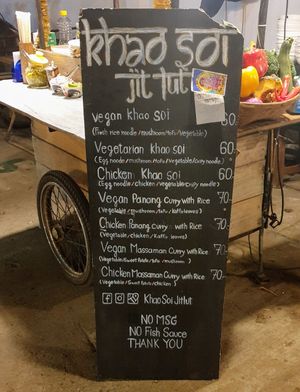 Khao Soi
jit lut
vegan khao soi 60
(Fresh rice noodle/mushroom/tofu/vegetable)
Vegetarian khao soi 60-
(Egg noodle/mushroom/tofu/vegetable/curry noodle)
Chicken Khao soi 60-
(Egg noodle/chicken/vegetable/curry noodle)
Vegan Panang Curry with Rice 70-
(Vegetable/mushroom/tofu/kaffir leaves)
Chicken Panang Curry with Rice 70-
(Vegetable/chicken/kaffir leaves)
Vegan Massaman Curry with Rice 70-
(Vegetable/Sweet Potato/tofu/)
Chicken Massaman Curry with Rice 70-
(Vegetable/Sweet Potato/chicken)
Khao Soi Jitlut
NO MSG
NO Fish Sauce
THANK YOU